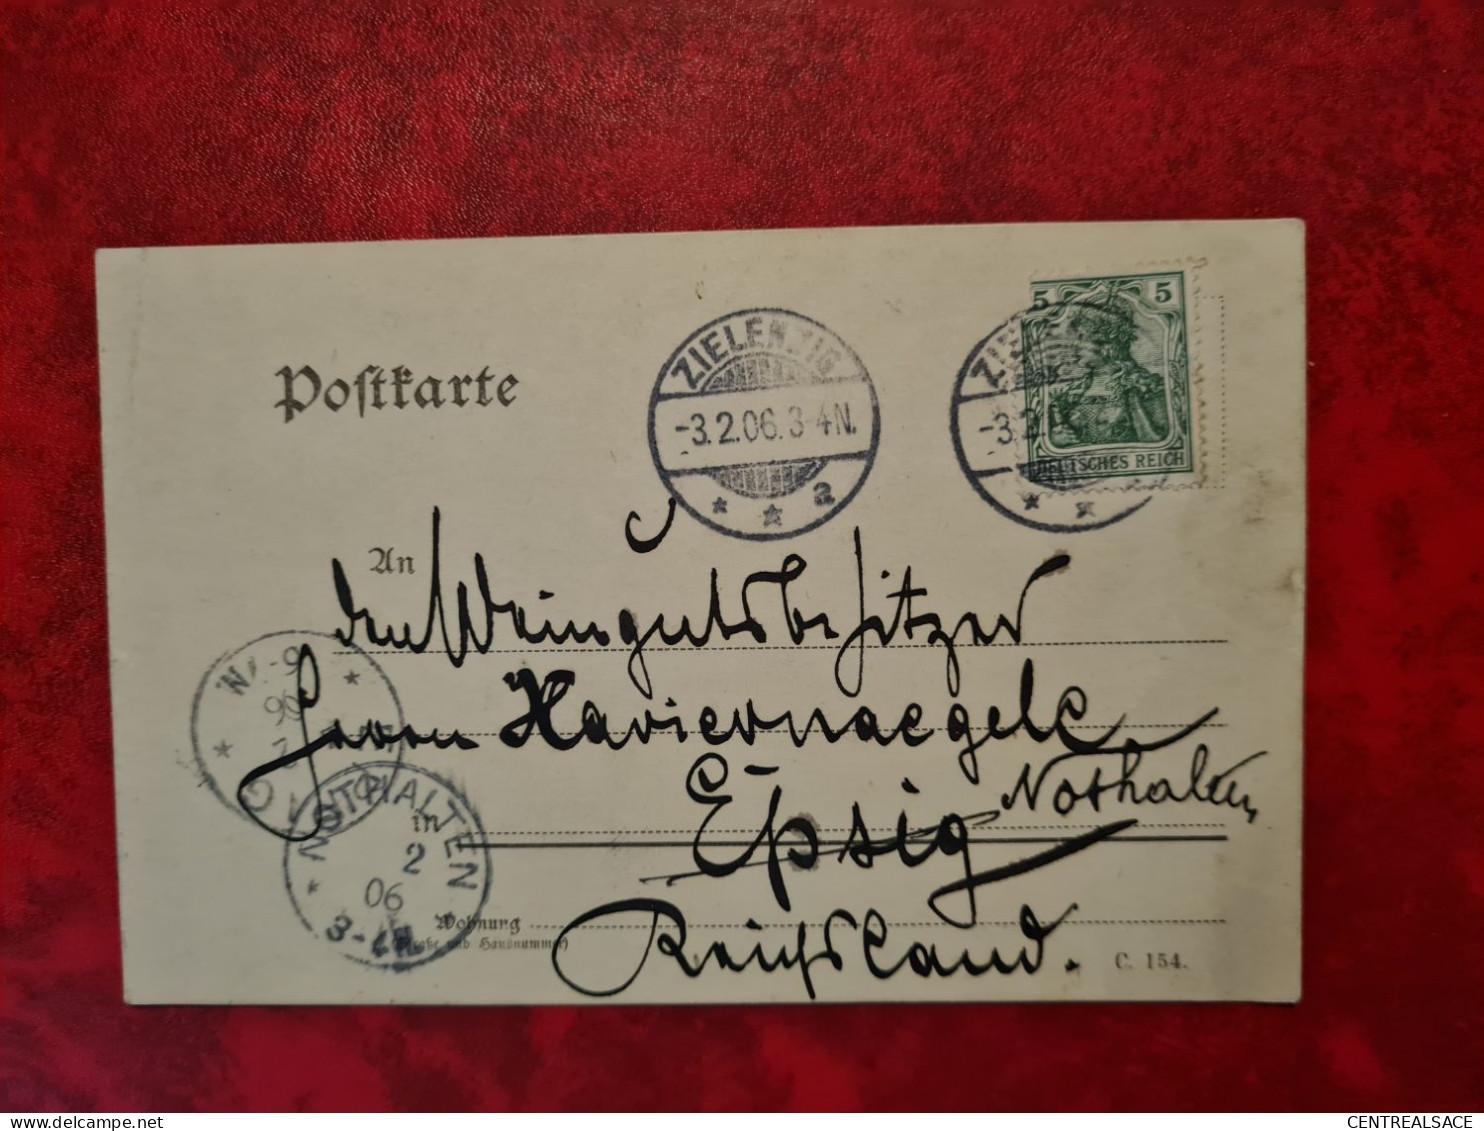 5 5
DEUTSCHES REICH
ZIELENZIG
-3.2.06.3-4N.
* * a
-3.2.
Postkarte
An
den Weingutsbesitzer
Herrn Xavier Naegele
in Epsig Nothalten
NOTHALTEN
2
06
3-4N.
Wohnung
(Straße und Hausnummer)
Reichsland.
C. 154.
CENTREALSACE
delcampe.net